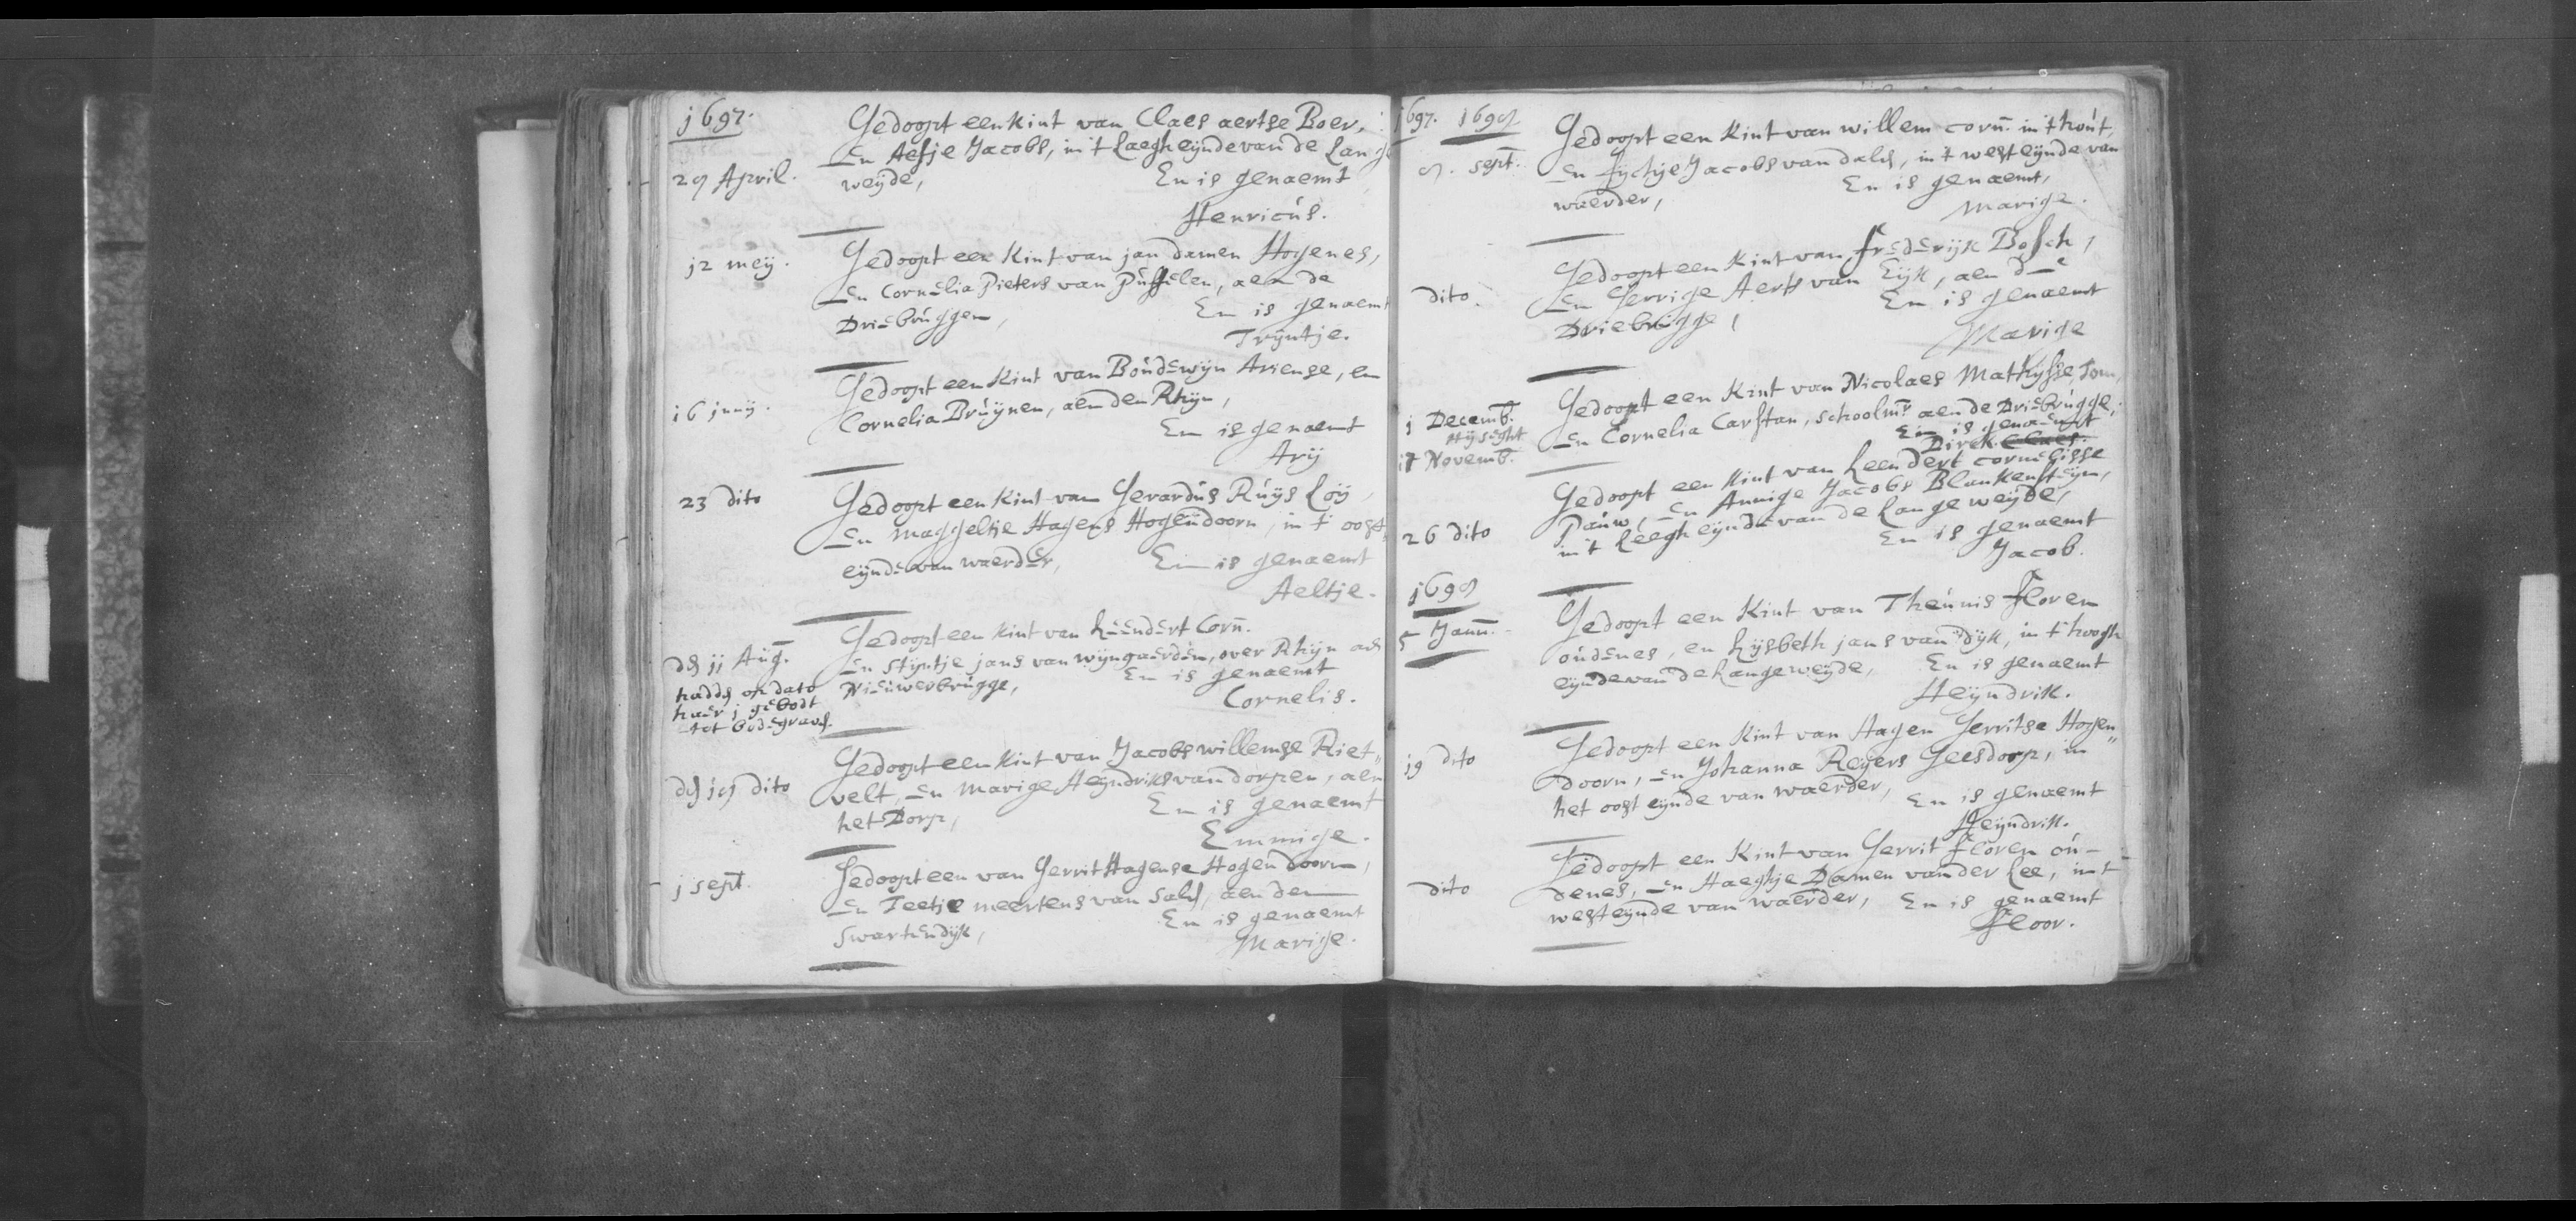 1697.
Gedoopt een kint van Claes aertse Boer,
En Aefje Jacobs, in 't Laegh eynde van de Lange
29 April.
weyde,
En is genaemt
Henricus.
12 mey.
Gedoopt een Kint van jan damen Hogenes,
En Cornelia Pieters van Puffelen, aen de
Driebruggen,
En is genaemt
Tryntje.
16 juny.
Gedoopt een Kint van Boudewyn Ariense, en
Cornelia Bruynen, aen den Rhyn,
En is genaemt
Ary
23 dito
Gedoopt een Kint van Gerardus Ruys Loy,
En Maggeltje Hagens Hogendoorn, in 't oost
eynde van waerder,
En is genaemt
Aeltje.
den 11 Aug.
Gedoopt een kint van Leendert Corn.
En Styntje jans van wyngaerden, over Rhyn aen
hadden op dato
haer 1 gebodt
tot bodegraven.
Nieuwerbrugge,
En is genaemt
Cornelis.
den 19 dito
Gedoopt een Kint van Jacobs willemse Riet„
velt, En Marige Heyndriks van dorpen, aen
het Dorp,
En is genaemt
Emmige.
1 sept.
Gedoopt een van Gerrit Hagense Hogendoorn,
En Teetje meertens van Salen, aen den
Swartendyk,
En is genaemt
Marige.
1697. 1698
8. sept.
Gedoopt een Kint van willem corn. in 't hout,
En Fychje Jacobs van dalen, in 't west eynde van
waerder,
En is genaemt,
Marige.
dito.
Gedoopt een Kint van frederyk Bosch,
En Gerrige Aerts van Eyk, aen de
Driebrugge,
En is genaemt
Marige
1 Decemb.
Gedoopt een Kint van Nicolaes Mathysse, Tom,
En Cornelia Carstan, schoolmr aen de Driebrugge,
17 Novemb.
En is genaemt
Dirck. Claes.
26 dito
Gedoopt een Kint van Leendert cornelisse
Pauw, En Annige Jacobs Blankensteyn,
in 't Leegh eynde van de Lange weyde,
En is genaemt
Jacob.
1698
5 Jann.
Gedoopt een Kint van Theunis Floren
oudenes, en Lysbeth jans van dyk, in 't hoogh
eynde van de Lange weyde,
En is genaemt
Heyndrik.
19 dito
Gedoopt een Kint van Hagen Gerritse Hogen„
doorn, En Johanna Reyers Geesdorp, in
het oost eynde van waerder,
En is genaemt
Heyndrik.
dito
Gedoopt een Kint van Gerrit Floren ou-
denes, En Haeghje Damen van der Lee, in t
west eynde van waerder,
En is genaemt
Floor.